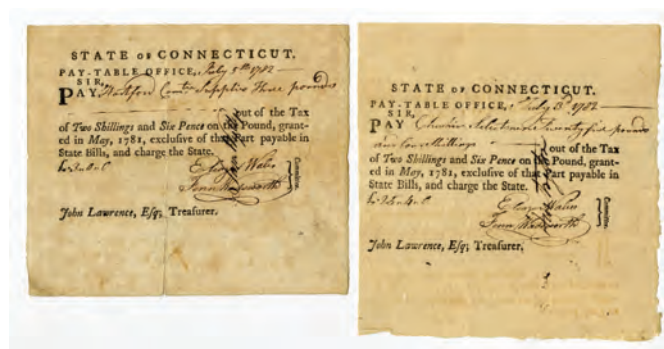 STATE OF CONNECTICUT.
PAY-TABLE OFFICE, July 5th 1782
SIR,
PAY Hartford Comtee Supplies Three pounds
out of the Tax
of Two Shillings and Six Pence on the Pound, grant-
ed in May, 1781, exclusive of that Part payable in
State Bills, and charge the State.
Eleazr Wales
Fenn Wadsworth
Committee.
John Lawrence, Esq; Treasurer.
STATE OF CONNECTICUT.
PAY-TABLE OFFICE, July 1782
SIR,
PAY Selectmen Twenty five pounds
Shillings
out of the Tax
of Two Shillings and Six Pence on the Pound, grant-
ed in May, 1781, exclusive of that Part payable in
State Bills, and charge the State.
Eleazr Wales
Fenn Wadsworth
Committee.
John Lawrence, Esq; Treasurer.